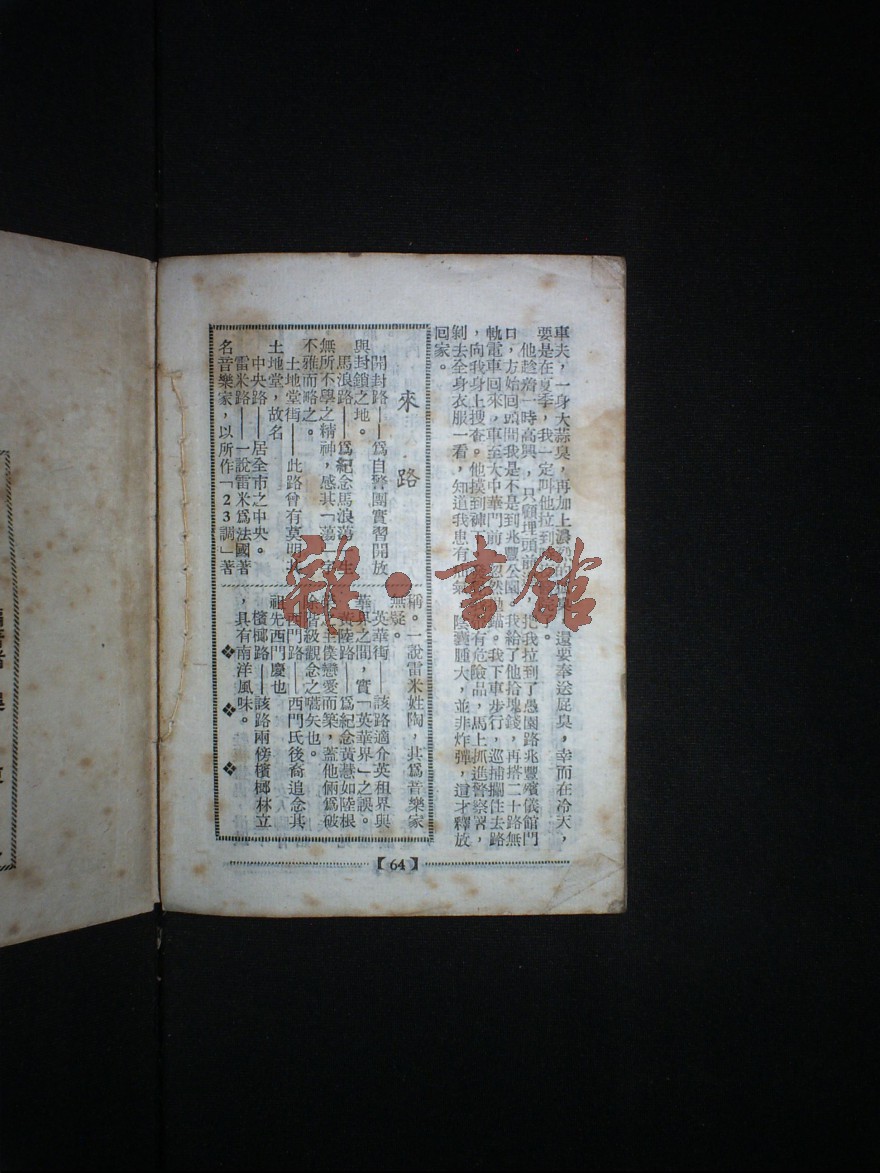 車夫，一身大蒜臭，再加上濃烈的
還要奉送屁臭，幸而在冷天，
要是在夏季，我一定叫他拉到
他趁着一時高興，只顧埋頭前
把我拉到了愚園路兆豐殯儀館門
口，方始回頭問我是不是到兆豐公園，我給了他拾塊錢，再搭二十路無
軌電車回來，車至大中華門前，忽然拋錨。我下車步行，巡捕攔住去路
，向我身上搜查。他摸到褲
有危險品，馬上抓進警察署，
剝去全身衣服一看，知道我患有
陰囊腫大，並非炸彈，這才釋放
回家。
來路
開封路——為自警團實習開放
與封鎖之地。
馬浪路——為紀念馬浪蕩
生
無所不學之精神，感其「蕩」字
不雅而略之。
土地堂街——此路曾有莫明其
土地堂，故名
中央路——居全市之中央。
雷米路——一說雷米為法國著
名音樂家，以所作「23調」著
稱。一說雷米姓陶，其為音樂家
無疑。
英華街——該路適介英租界與
華界之間，實「英華界」之誤。
黃陸路——為紀念黃慧如陸根
之主僕戀愛而築，蓋他倆為破
除階級觀念之嚆矢也。
西門路——西門氏後裔追念其
祖先西門慶也
檳榔路——該路兩傍檳榔林立
，具有南洋風味。
【64】
雜·書館